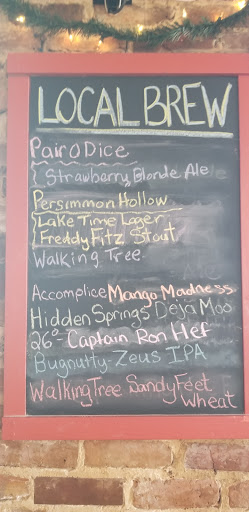 LOCAL BREW
Pair O Dice
Strawberry Blonde Ale
Persimmon Hollow
Lake Time Lager
Freddy Fitz Stout
Walking Tree
Accomplice Mango Madness
Hidden Springs Deja Moo
26° - Captain Ron Hef
Bugnutty - Zeus IPA
Walking Tree Sandy Feet
Wheat